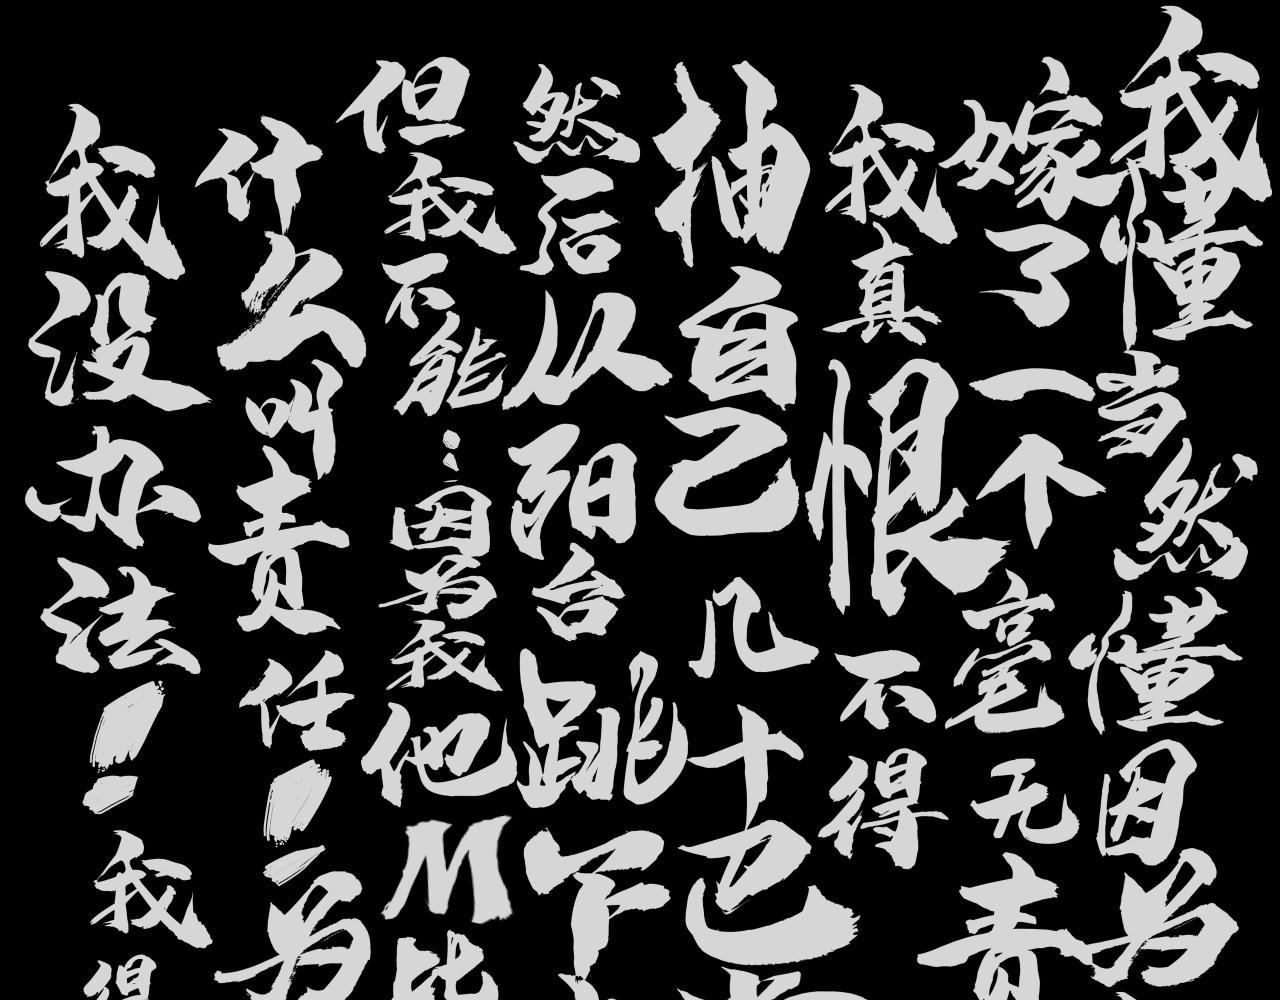 我懂当然懂因为
嫁了一个毫无责
我真恨不得
抽自己几十巴
然后从阳台跳下
但我不能：因为我他M比
什么叫责任！为
我没办法！我得